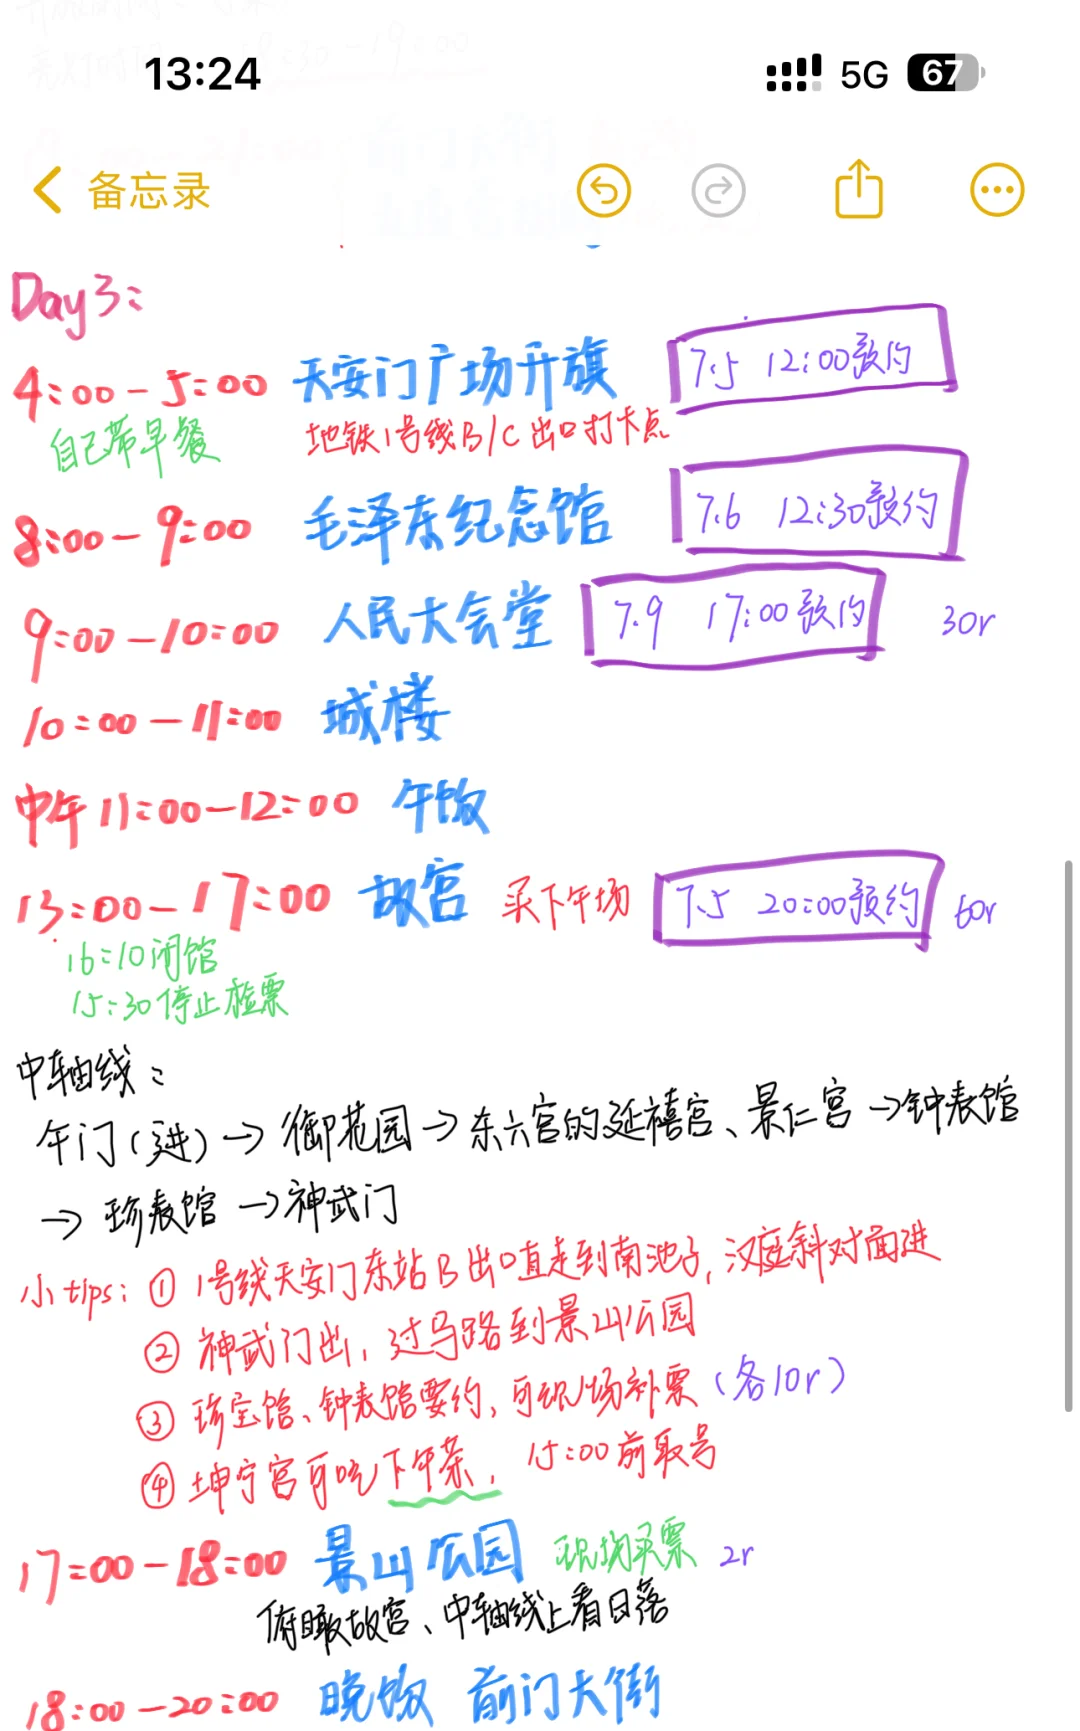 13:24 5G 67
备忘录
Day3:
4:00-5:00 天安门广场升旗 7.5 12:00预约
自己带早餐 地铁1号线B/C出口打卡点
8:00-9:00 毛泽东纪念馆 7.6 12:30预约
9:00-10:00 人民大会堂 7.9 17:00预约 30r
10:00-11:00 城楼
中午11:00-12:00 午饭
13:00-17:00 故宫 买下午场 7.5 20:00预约 60r
16:10闭馆
15:30停止检票
中轴线:
午门(进)→御花园→东六宫的延禧宫、景仁宫→钟表馆
→珍表馆→神武门
小tips: ①1号线天安门东站B出口直走到南池子,汉庭斜对面进
②神武门出,过马路到景山公园
③珍宝馆、钟表馆要约,可现场补票(各10r)
④坤宁宫可吃下午茶, 15:00前取号
17:00-18:00 景山公园 现场买票 2r
俯瞰故宫、中轴线上看日落
18:00-20:00 晚饭 前门大街